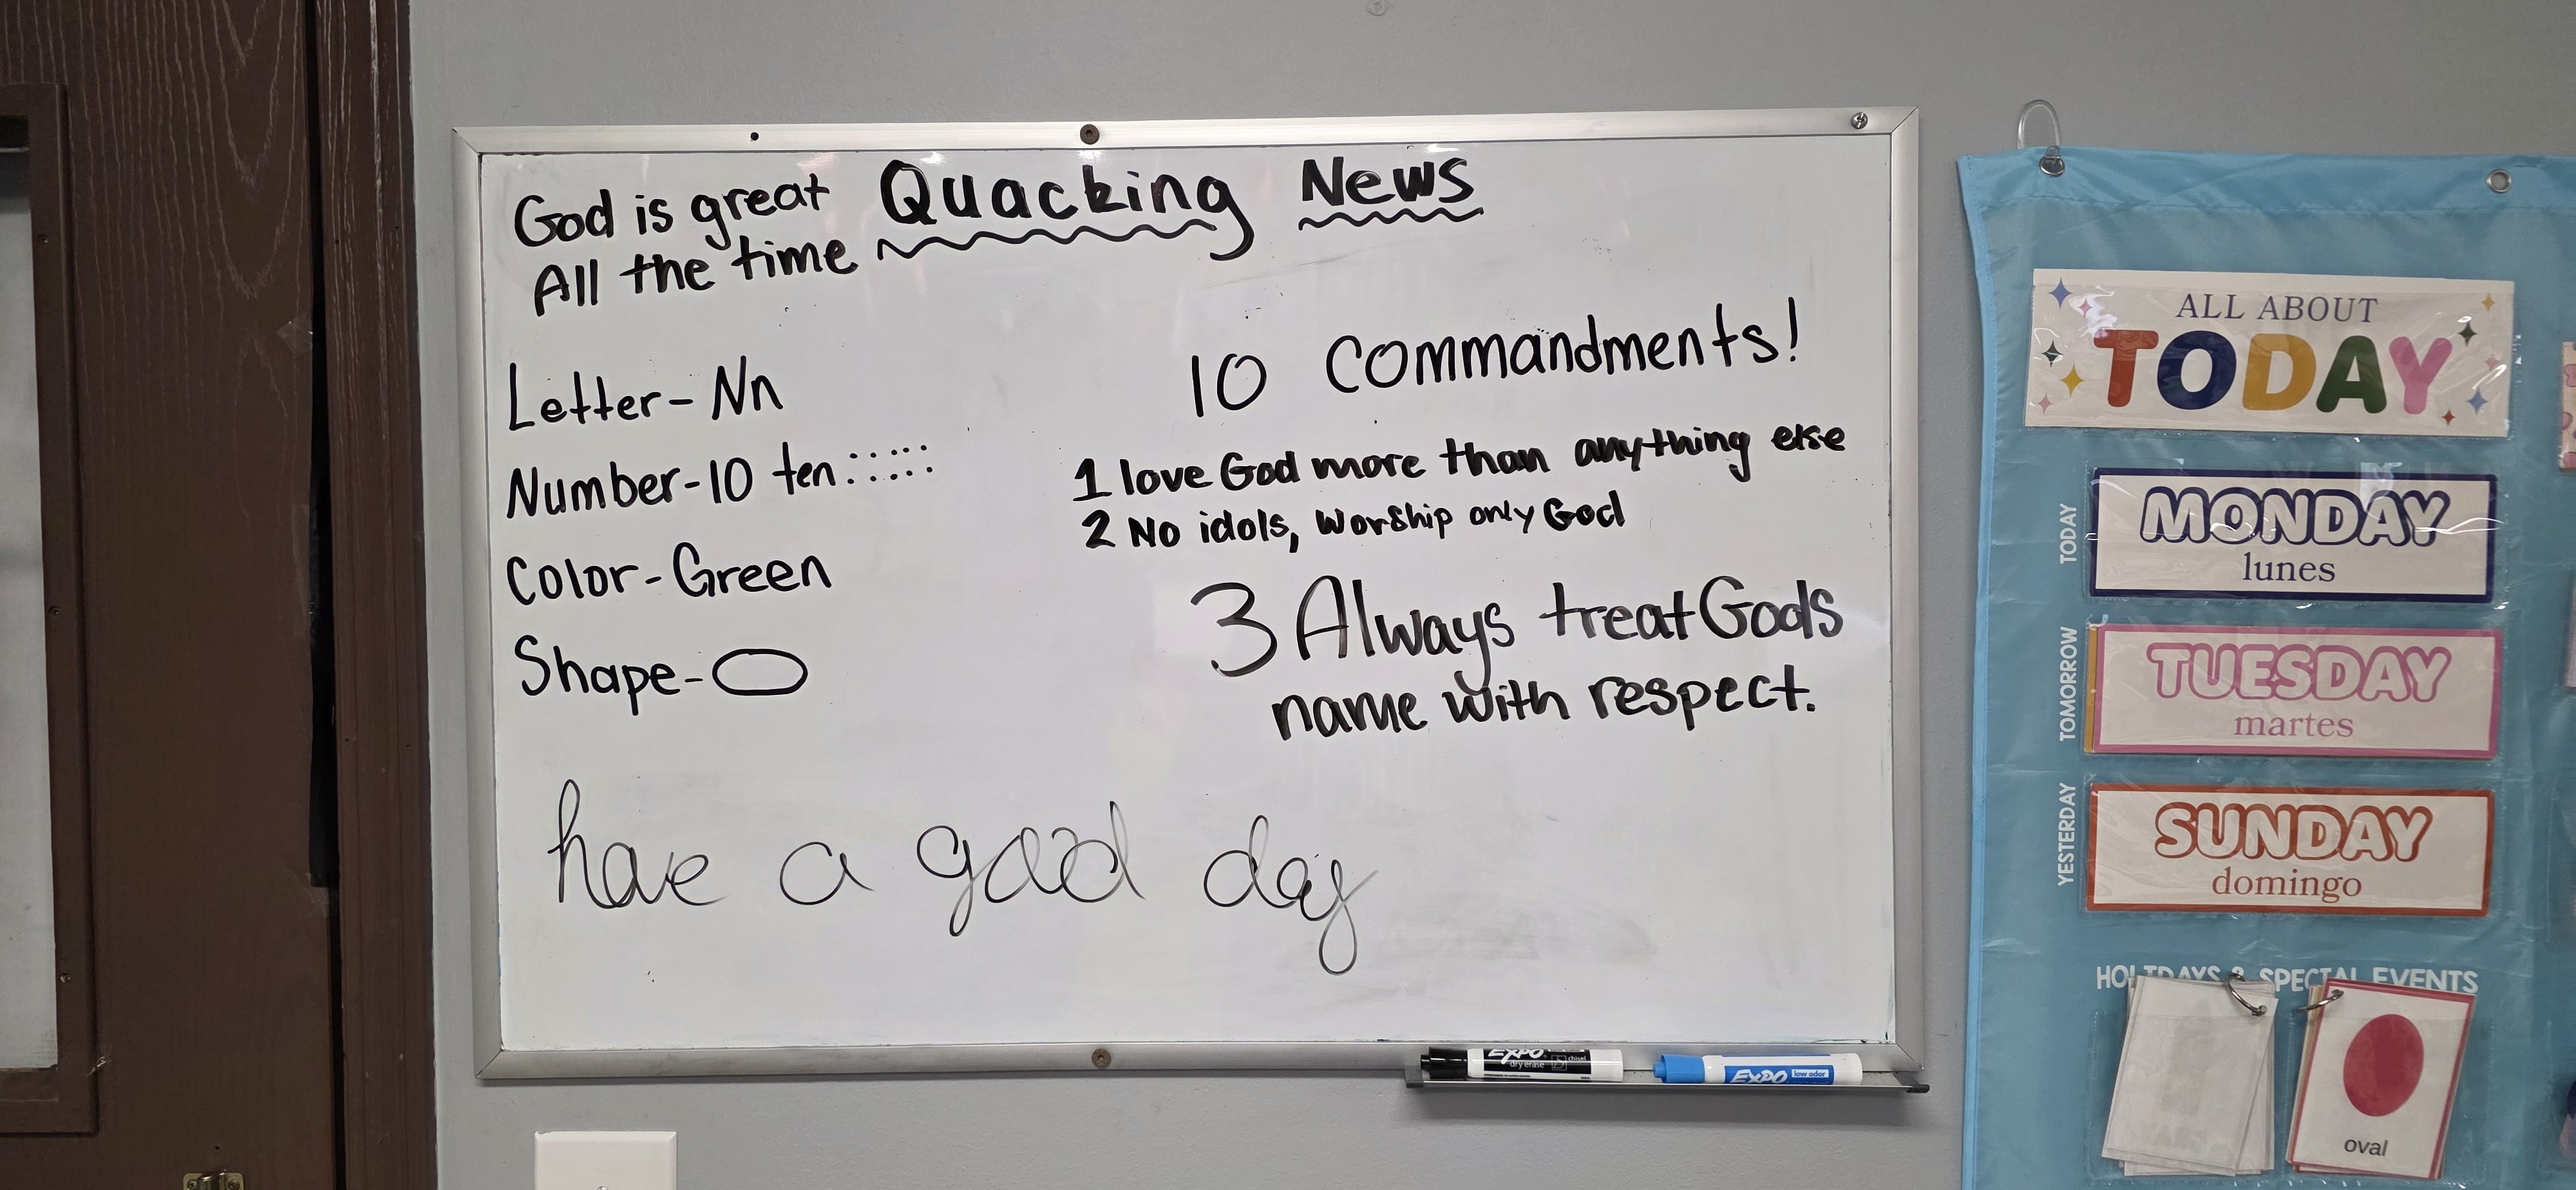 God is great Quacking News
All the time
Letter- Nn
Number-10 ten
Color-Green
Shape-
10 Commandments!
1 love God more than anything else
2 No idols, Worship only God
3 Always treat Gods
name with respect.
have a good day
EXPO
dry erase
chisel
EXPO
low odor
ALL ABOUT
TODAY
TODAY
MONDAY
lunes
TOMORROW
TUESDAY
martes
YESTERDAY
SUNDAY
domingo
HOLIDAYS & SPECIAL EVENTS
oval